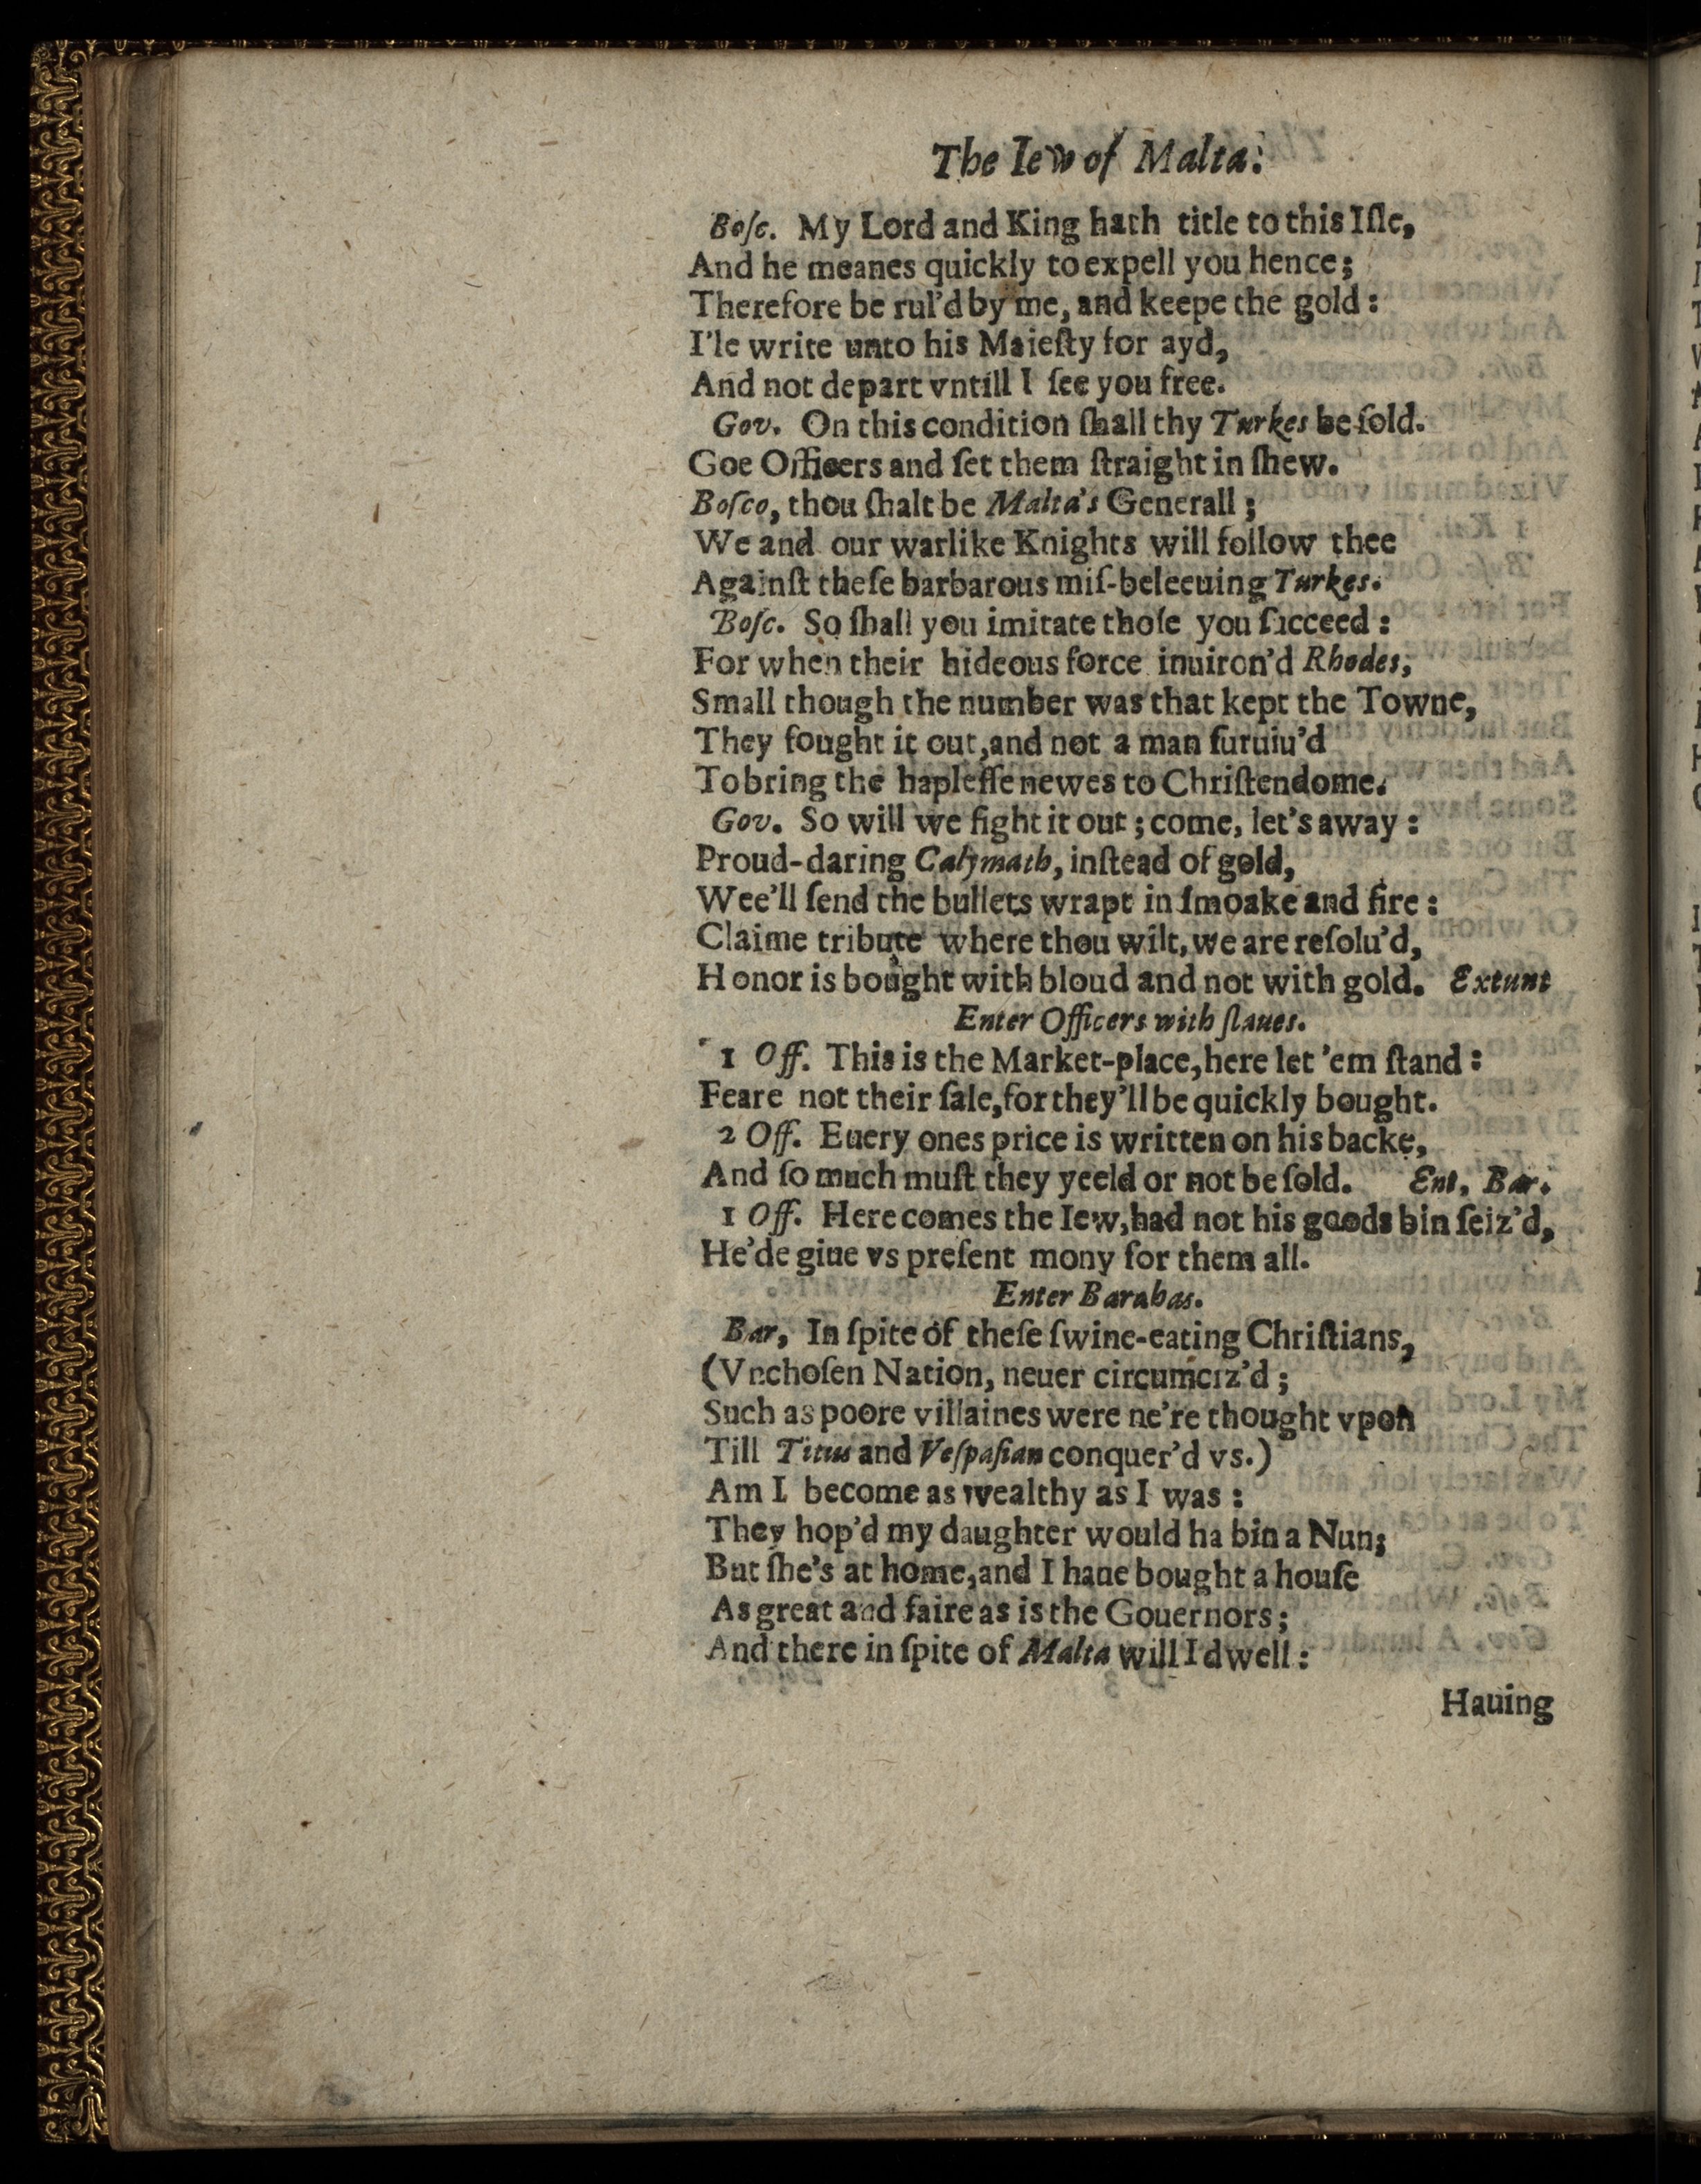 The Iew of Malta.
Boſc. My Lord and King hath title to this Iſle,
And he meanes quickly to expell you hence;
Therefore be rul'd by me, and keepe the gold:
I'le write unto his Maieſty for ayd,
And not depart vntill I ſee you free.
Gov. On this condition ſhall thy Turkes be ſold.
Goe Officers and ſet them ſtraight in ſhew.
Boſco, thou ſhalt be Malta's Generall;
We and our warlike Knights will follow thee
Againſt theſe barbarous miſ-beleeuing Turkes.
Boſc. So ſhall you imitate thoſe you ſucceed:
For when their hideous force inuiron'd Rhodes,
Small though the number was that kept the Towne,
They fought it out, and not a man ſuruiu'd
To bring the hapleſſe newes to Chriſtendome.
Gov. So will we fight it out; come, let's away:
Proud-daring Calymath, inſtead of gold,
Wee'll ſend the bullets wrapt in ſmoake and fire:
Claime tribute where thou wilt, we are reſolu'd,
Honor is bought with bloud and not with gold. Exeunt
Enter Officers with ſlaues.
1 Off. This is the Market-place, here let 'em ſtand:
Feare not their ſale, for they'll be quickly bought.
2 Off. Euery ones price is written on his backe,
And ſo much muſt they yeeld or not be ſold. Ent. Bar.
1 Off. Here comes the Iew, had not his goods bin ſeiz'd,
He'de giue vs preſent mony for them all.
Enter Barabas.
Bar, In ſpite of theſe ſwine-eating Chriſtians,
(Vnchoſen Nation, neuer circumciz'd;
Such as poore villaines were ne're thought vpon
Till Titus and Veſpaſian conquer'd vs.)
Am I become as wealthy as I was:
They hop'd my daughter would ha bin a Nun;
But ſhe's at home, and I haue bought a houſe
As great and faire as is the Gouernors;
And there in ſpite of Malta will I dwell:
Hauing